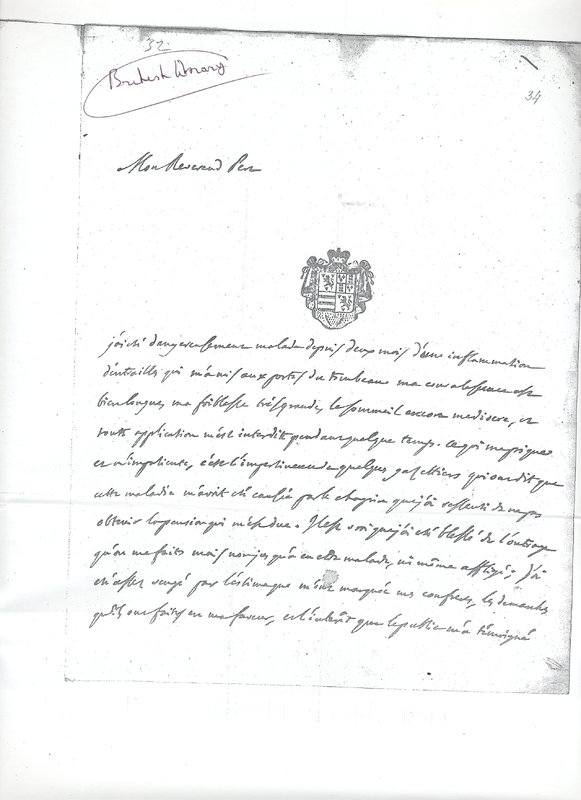 32
British Library
34
Mon Reverend Pere
j'ai été dangereusement malade depuis deux mois d'une inflammation
d'entrailles qui m'a mis aux portes du tombeau ma convalescence est
bien longue, ma foiblesse trés grande, le sommeil encore mediocre, et
toute application m'est interdite pendant quelque temps. ce qui me pique
et m'impatiente, c'est l'impertinence de quelques gazettiers qui ont dit que
cette maladie m'avoit été causée par le chagrin que j'ai ressenti de ne pas
obtenir la pension qui m'est due. Il est vrai que j'ai été blessé de l'outrage
qu'on me fait, mais non jusqu'à en être malade, ni même affligé; j'ai
été assez vengé par l'estime que m'ont marquée mes confreres, les demarches
qu'ils ont faites en ma faveur, et l'interêt que le public m'a témoigné